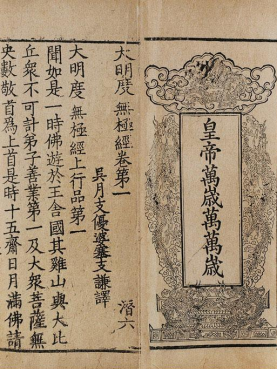 皇帝萬歲萬萬歲
大明度無極經卷第一
潛六
吳月支優婆塞支謙譯
大明度無極經上行品第一
聞如是一時佛遊於王舍國其雞山與大比
丘衆不可計弟子善業第一及大衆菩薩無
央數敬首爲上首是時十五齋日月滿佛請